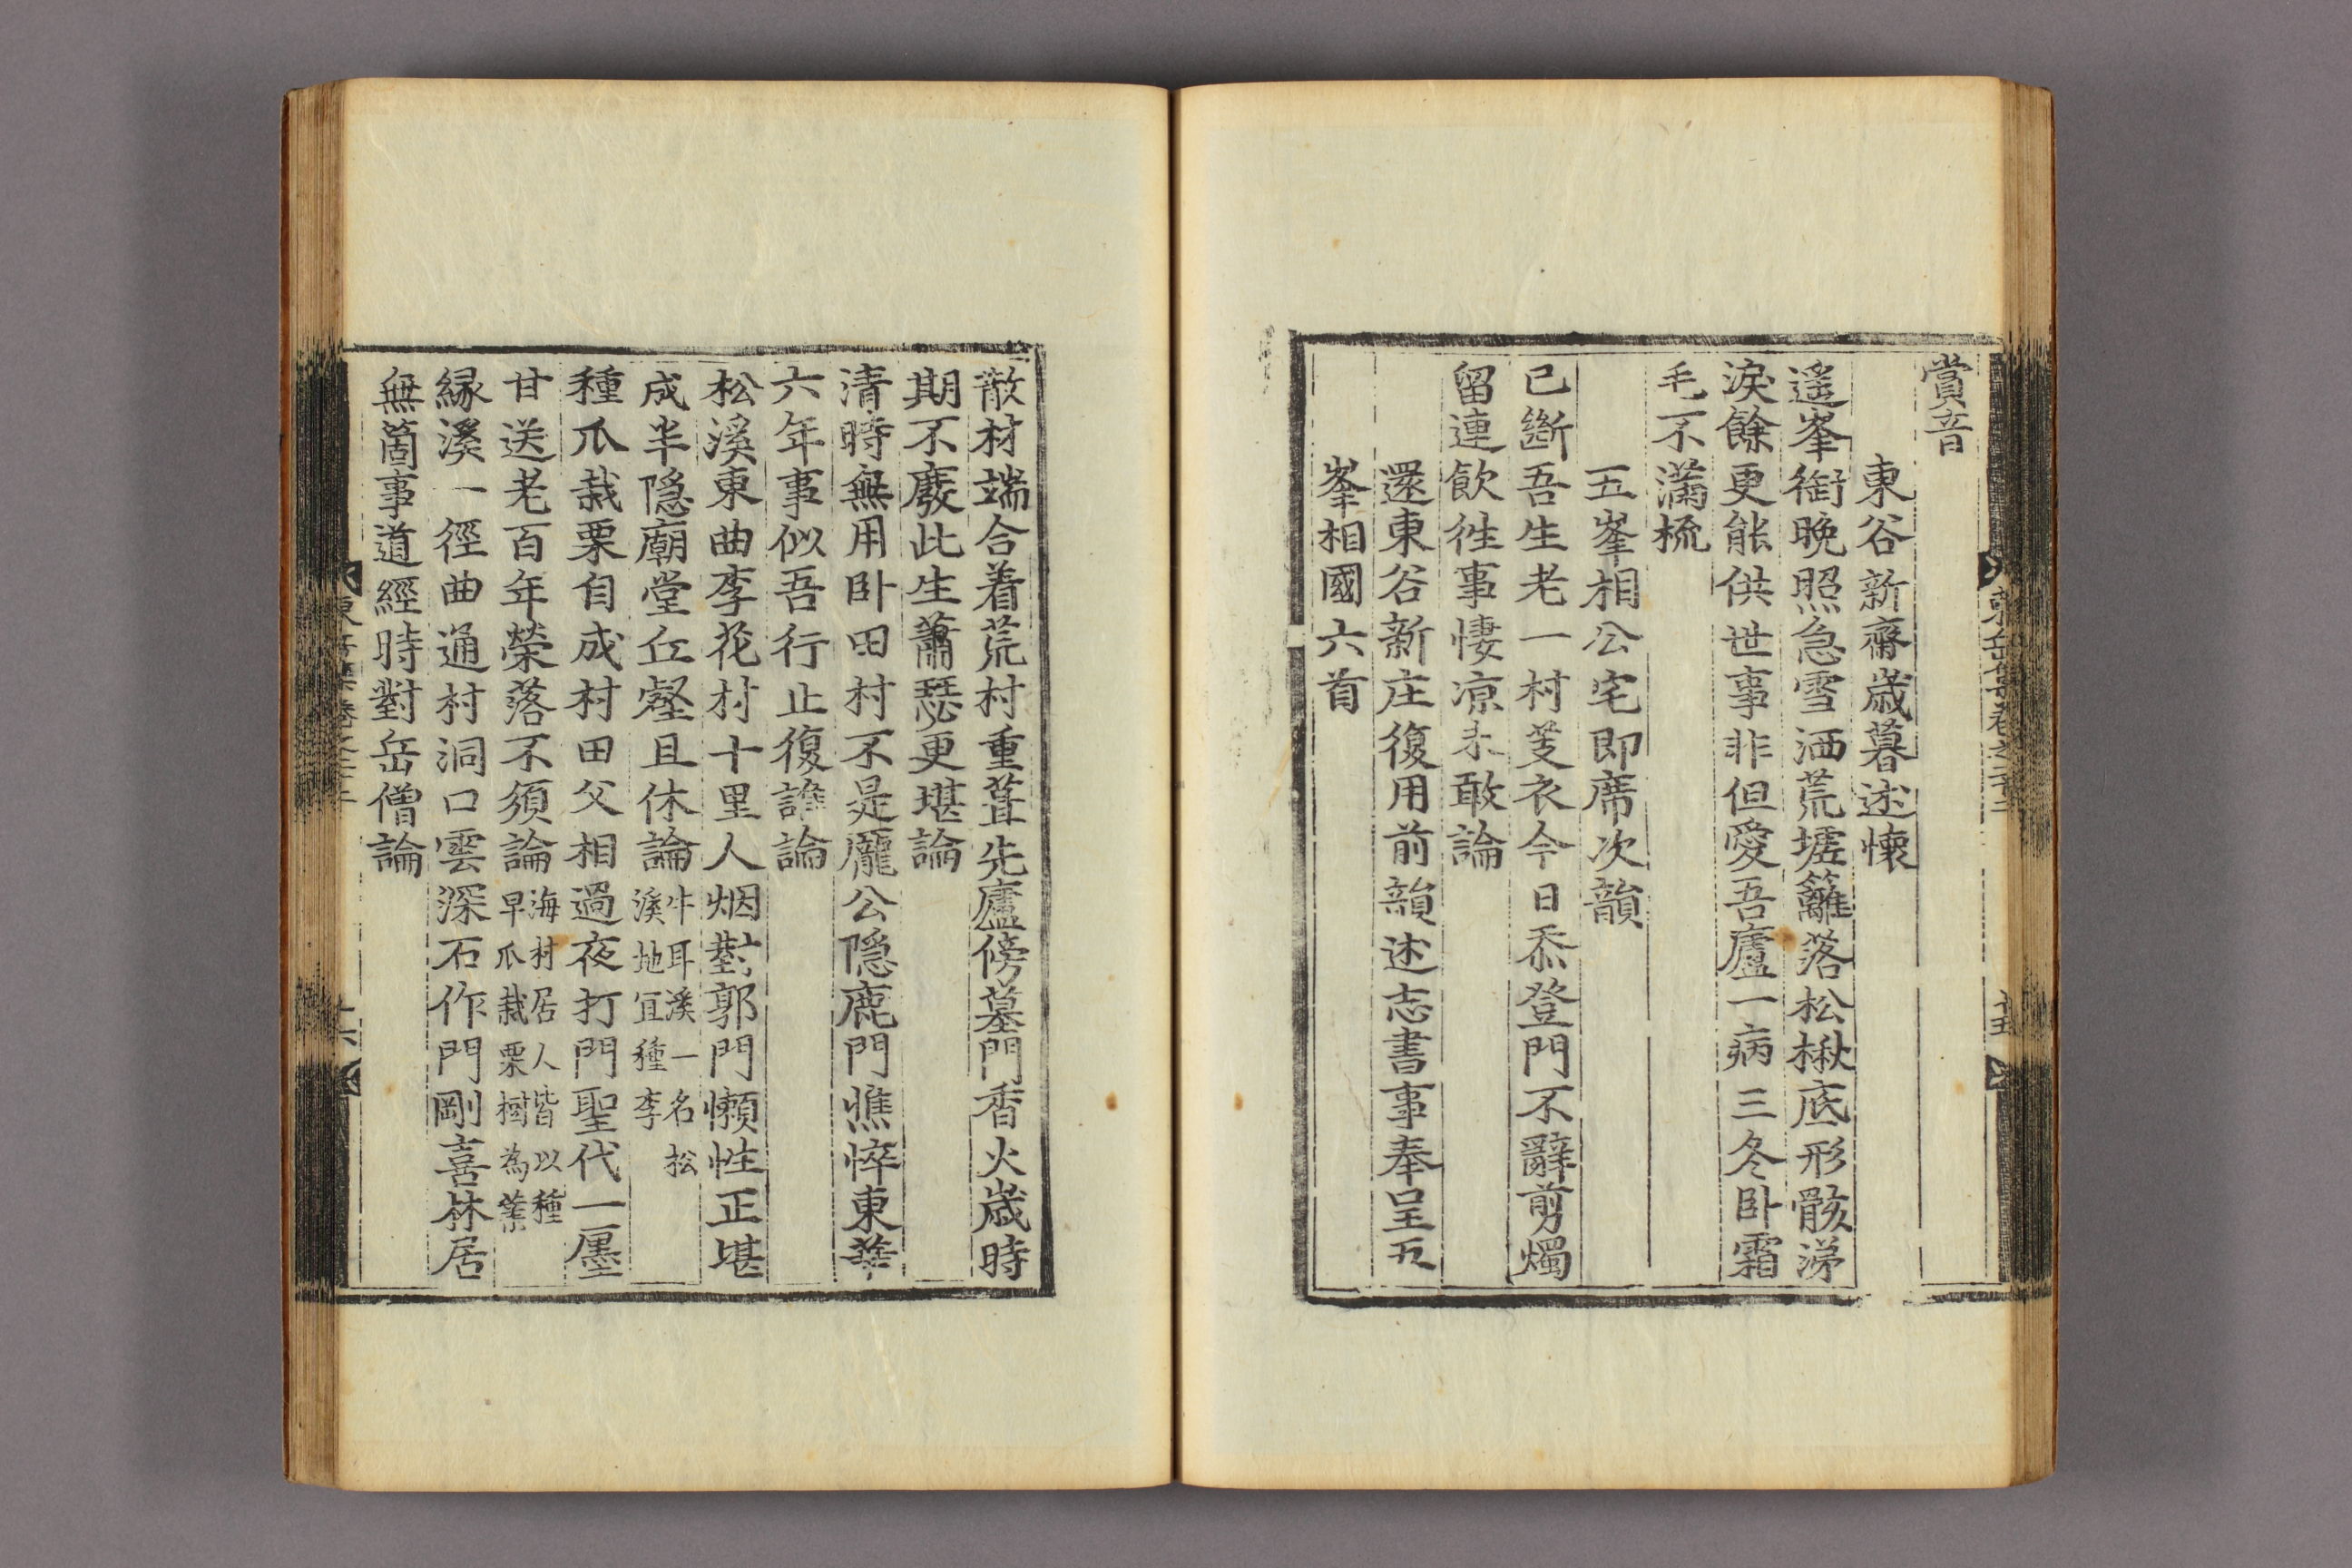 賞音
東谷新齋歲暮述懷
遥峯銜晚照急雪洒荒墟籬落松楸底形骸涕
淚餘更能供世事非但愛吾廬一病三冬卧霜
毛不滿梳
五峯相公宅即席次韻
已斷吾生老一村蓑衣今日忝登門不辭剪燭
留連飲徃事悽凉未敢論
還東谷新庄復用前韻述志書事奉呈五
峯相國六首
散材端合着荒村重葺先廬傍墓門香火歲時
期不廢此生蕭瑟更堪論
清時無用卧田村不是龐公隱鹿門憔悴東華
六年事似吾行止復誰論
松溪東曲李花村十里人烟對郭門懶性正堪
成半隱廟堂丘壑且休論
牛耳溪一名松
溪地宜種李
種爪栽栗自成村田父相過夜打門聖代一廛
甘送老百年榮落不須論
海村居人皆以種
早爪栽栗樹為業
緣溪一徑曲通村洞口雲深石作門剛喜林居
無箇事道經時對岳僧論